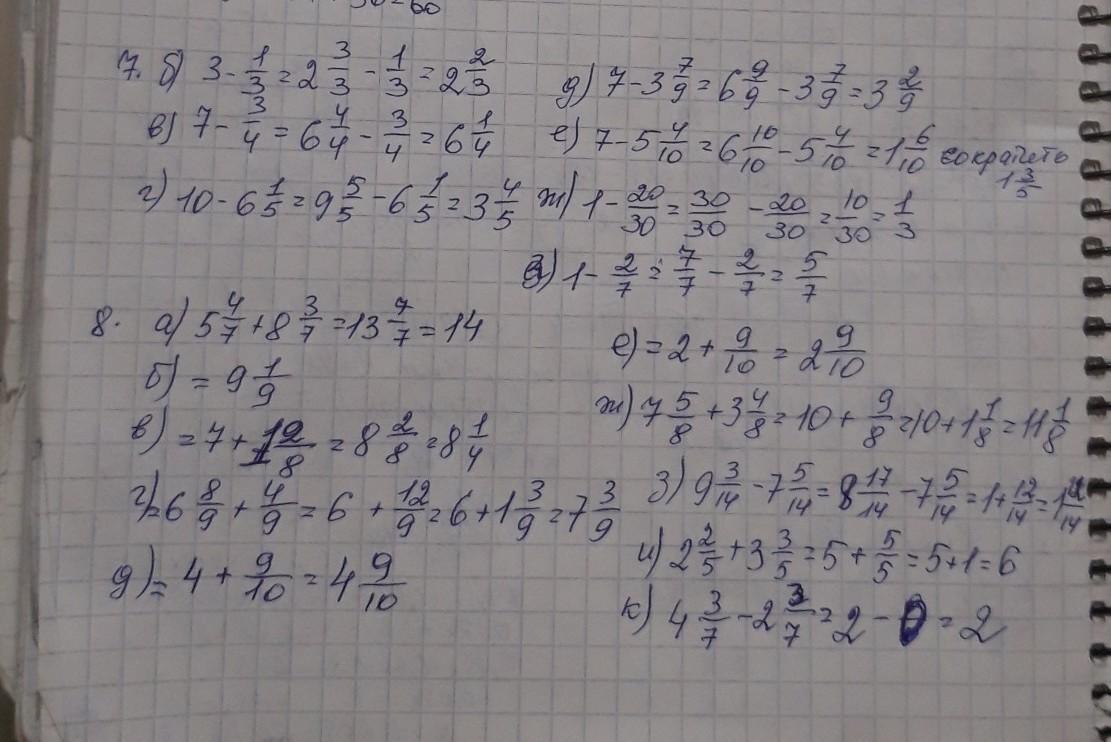 30=60
7. б) 3 - 1/3 = 2 3/3 - 1/3 = 2 2/3
в) 7 - 3/4 = 6 4/4 - 3/4 = 6 1/4
г) 10 - 6 1/5 = 9 5/5 - 6 1/5 = 3 4/5
д) 7 - 3 7/9 = 6 9/9 - 3 7/9 = 3 2/9
е) 7 - 5 4/10 = 6 10/10 - 5 4/10 = 1 6/10 сократить
1 3/5
ж) 1 - 20/30 = 30/30 - 20/30 = 10/30 = 1/3
з) 1 - 2/7 = 7/7 - 2/7 = 5/7
8. а) 5 4/7 + 8 3/7 = 13 7/7 = 14
б) = 9 1/9
в) = 7 + 10/8 = 8 2/8 = 8 1/4
г) = 6 8/9 + 4/9 = 6 + 12/9 = 6 + 1 3/9 = 7 3/9
д) = 4 + 9/10 = 4 9/10
е) = 2 + 9/10 = 2 9/10
ж) 7 5/8 + 3 4/8 = 10 + 9/8 = 10 + 1 1/8 = 11 1/8
з) 9 3/14 - 7 5/14 = 8 17/14 - 7 5/14 = 1 + 12/14 = 1 12/14
и) 2 2/5 + 3 3/5 = 5 + 5/5 = 5 + 1 = 6
к) 4 3/7 - 2 3/7 = 2 - 0 = 2